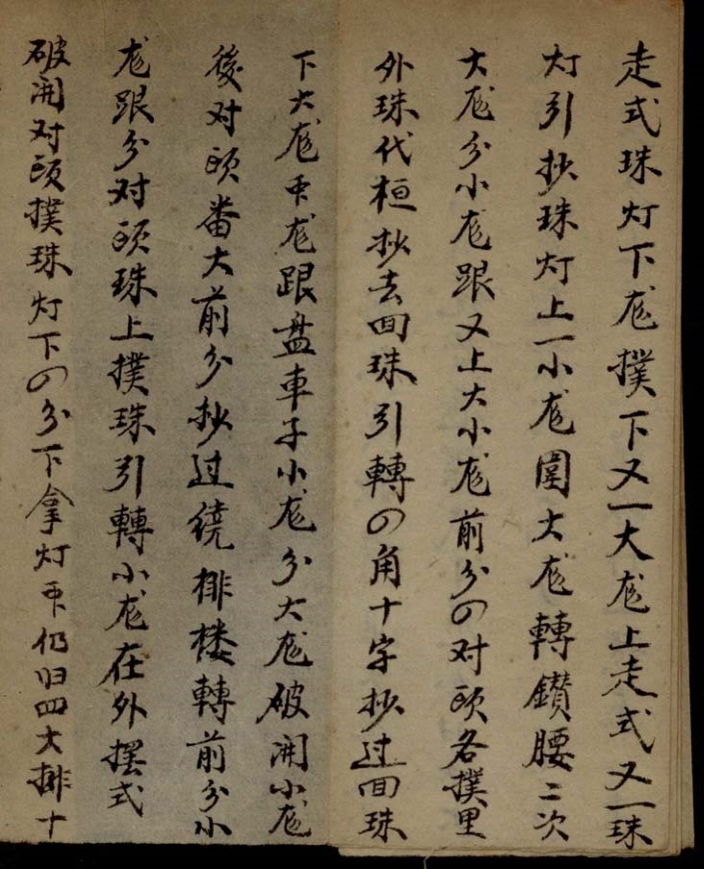 走式珠灯下龙撲下又一大龙上走式又一珠
灯引抄珠灯上一小龙圍大龙轉鑽腰二次
大龙分小龙跟又上大小龙前分四对頭各撲里
外珠代桓抄去回珠引轉四角十字抄过回珠
下大龙龙跟盘車子小龙分大龙破開小龙
後对頭番大前分抄过绕排楼轉前分小
龙跟分对頭珠上撲珠引轉小龙在外摆式
破開对頭撲珠灯下四分下拿灯仍归四大排十